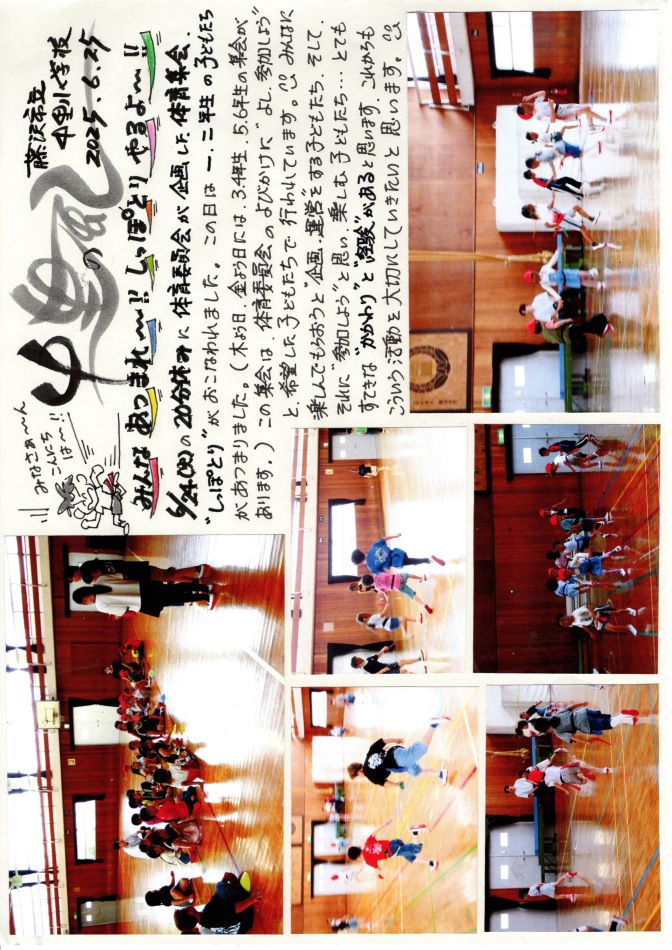 みなさぁ〜ん
こんにち
は〜!!
中里の風
藤沢市立
中里小学校
2025.6.25
みんな あつまれ〜!! しっぽとり やるよ〜!!
6/24(火)の20分休みに体育委員会が企画した体育集会、
"しっぽとり"がおこなわれました。この日は一、二年生の子どもたち
があつまりました。(木よう日、金よう日には、3.4年生、5.6年生の集会が
あります。)この集会は、体育委員会のよびかけに"よし、参加しよう"
と、希望した子どもたちで行われています。みんなに
楽しんでもらおうと"企画、運営"をする子どもたち、そして、
それに"参加しよう"と思い、楽しむ子どもたち…とても
すてきな"かかわり"と"経験"があると思います。これからも
こういう活動を大切にしていきたいと思います。